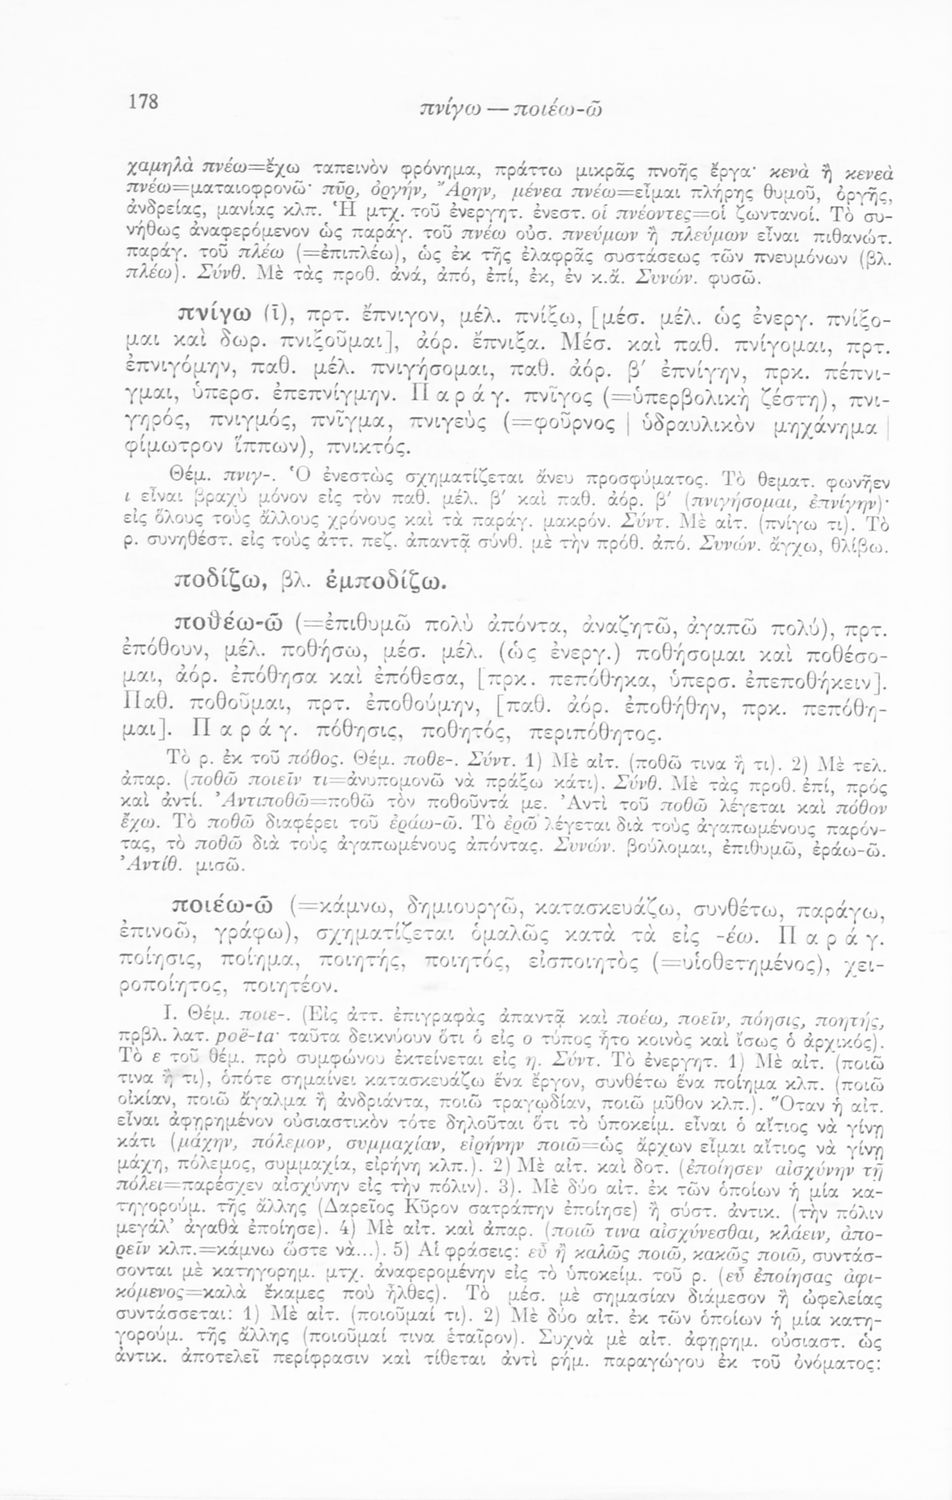 178
πνίγω — ποιέω-ῶ
χαμηλὰ πνέω=ἔχω ταπεινὸν φρόνημα, πράττω μικρᾶς πνοῆς ἔργα· κενὰ ἢ κενεὰ
πνέω=ματαιοφρονῶ· πῦρ, ὀργήν, Ἄρην, μένεα πνέω=εἶμαι πλήρης θυμοῦ, ὀργῆς,
ἀνδρείας, μανίας κλπ. Ἡ μτχ. τοῦ ἐνεργητ. ἐνεστ. οἱ πνέοντες=οἱ ζωντανοί. Τὸ συ-
νήθως ἀναφερόμενον ὡς παράγ. τοῦ πνέω οὐσ. πνεύμων ἢ πλεύμων εἶναι πιθανώτ.
παράγ. τοῦ πλέω (=ἐπιπλέω), ὡς ἐκ τῆς ἐλαφρᾶς συστάσεως τῶν πνευμόνων (βλ.
πλέω). Σύνθ. Μὲ τὰς προθ. ἀνά, ἀπό, ἐπί, ἐκ, ἐν κ.ἄ. Συνών. φυσῶ.
πνίγω (ῑ), πρτ. ἔπνιγον, μέλ. πνίξω, [μέσ. μέλ. ὡς ἐνεργ. πνίξο-
μαι καὶ δωρ. πνιξοῦμαι], ἀόρ. ἔπνιξα. Μέσ. καὶ παθ. πνίγομαι, πρτ.
ἐπνιγόμην, παθ. μέλ. πνιγήσομαι, παθ. ἀόρ. β΄ ἐπνίγην, πρκ. πέπνι-
γμαι, ὑπερσ. ἐπεπνίγμην. Παράγ. πνῖγος (=ὑπερβολικὴ ζέστη), πνι-
γηρός, πνιγμός, πνῖγμα, πνιγεὺς (=φοῦρνος | ὑδραυλικὸν μηχάνημα |
φίμωτρον ἵππων), πνικτός.
Θέμ. πνιγ-. Ὁ ἐνεστὼς σχηματίζεται ἄνευ προσφύματος. Τὸ θεματ. φωνῆεν
ι εἶναι βραχὺ μόνον εἰς τὸν παθ. μέλ. β΄ καὶ παθ. ἀόρ. β΄ (πνιγήσομαι, ἐπνίγην)·
εἰς ὅλους τοὺς ἄλλους χρόνους καὶ τὰ παράγ. μακρόν. Σύντ. Μὲ αἰτ. (πνίγω τι). Τὸ
ρ. συνηθέστ. εἰς τοὺς ἀττ. πεζ. ἀπαντᾷ σύνθ. μὲ τὴν πρόθ. ἀπό. Συνών. ἄγχω, θλίβω.
ποδίζω, βλ. ἐμποδίζω.
ποθέω-ῶ (=ἐπιθυμῶ πολὺ ἀπόντα, ἀναζητῶ, ἀγαπῶ πολύ), πρτ.
ἐπόθουν, μέλ. ποθήσω, μέσ. μέλ. (ὡς ἐνεργ.) ποθήσομαι καὶ ποθέσο-
μαι, ἀόρ. ἐπόθησα καὶ ἐπόθεσα, [πρκ. πεπόθηκα, ὑπερσ. ἐπεποθήκειν].
Παθ. ποθοῦμαι, πρτ. ἐποθούμην, [παθ. ἀόρ. ἐποθήθην, πρκ. πεπόθη-
μαι]. Παράγ. πόθησις, ποθητός, περιπόθητος.
Τὸ ρ. ἐκ τοῦ πόθος. Θέμ. ποθε-. Σύντ. 1) Μὲ αἰτ. (ποθῶ τινα ἤ τι). 2) Μὲ τελ.
ἀπαρ. (ποθῶ ποιεῖν τι=ἀνυπομονῶ νὰ πράξω κάτι). Σύνθ. Μὲ τὰς προθ. ἐπί, πρός
καὶ ἀντί. Ἀντιποθῶ=ποθῶ τὸν ποθοῦντά με. Ἀντὶ τοῦ ποθῶ λέγεται καὶ πόθον
ἔχω. Τὸ ποθῶ διαφέρει τοῦ ἐράω-ῶ. Τὸ ἐρῶ λέγεται διὰ τοὺς ἀγαπωμένους παρόν-
τας, τὸ ποθῶ διὰ τοὺς ἀγαπωμένους ἀπόντας. Συνών. βούλομαι, ἐπιθυμῶ, ἐράω-ῶ.
Ἀντίθ. μισῶ.
ποιέω-ῶ (=κάμνω, δημιουργῶ, κατασκευάζω, συνθέτω, παράγω,
ἐπινοῶ, γράφω), σχηματίζεται ὁμαλῶς κατὰ τὰ εἰς -έω. Παράγ.
ποίησις, ποίημα, ποιητής, ποιητός, εἰσποιητὸς (=υἱοθετημένος), χει-
ροποίητος, ποιητέον.
I. Θέμ. ποιε-. (Εἰς ἀττ. ἐπιγραφὰς ἀπαντᾷ καὶ ποέω, ποεῖν, πόησις, ποητής,
πρβλ. λατ. poë-ta· ταῦτα δεικνύουν ὅτι ὁ εἰς ο τύπος ἦτο κοινὸς καὶ ἴσως ὁ ἀρχικός).
Τὸ ε τοῦ θέμ. πρὸ συμφώνου ἐκτείνεται εἰς η. Σύντ. Τὸ ἐνεργητ. 1) Μὲ αἰτ. (ποιῶ
τινα ἤ τι), ὁπότε σημαίνει κατασκευάζω ἕνα ἔργον, συνθέτω ἕνα ποίημα κλπ. (ποιῶ
οἰκίαν, ποιῶ ἄγαλμα ἢ ἀνδριάντα, ποιῶ τραγῳδίαν, ποιῶ μῦθον κλπ.). Ὅταν ἡ αἰτ.
εἶναι ἀφῃρημένον οὐσιαστικὸν τότε δηλοῦται ὅτι τὸ ὑποκείμ. εἶναι ὁ αἴτιος νὰ γίνῃ
κάτι (μάχην, πόλεμον, συμμαχίαν, εἰρήνην ποιῶ=ὡς ἄρχων εἶμαι αἴτιος νὰ γίνῃ
μάχη, πόλεμος, συμμαχία, εἰρήνη κλπ.). 2) Μὲ αἰτ. καὶ δοτ. (ἐποίησεν αἰσχύνην τῇ
πόλει=παρέσχεν αἰσχύνην εἰς τὴν πόλιν). 3). Μὲ δύο αἰτ. ἐκ τῶν ὁποίων ἡ μία κα-
τηγορούμ. τῆς ἄλλης (Δαρεῖος Κῦρον σατράπην ἐποίησε) ἢ σύστ. ἀντικ. (τὴν πόλιν
μεγάλ' ἀγαθὰ ἐποίησε). 4) Μὲ αἰτ. καὶ ἀπαρ. (ποιῶ τινα αἰσχύνεσθαι, κλάειν, ἀπο-
ρεῖν κλπ.=κάμνω ὥστε νὰ...). 5) Αἱ φράσεις: εὖ ἢ καλῶς ποιῶ, κακῶς ποιῶ, συντάσ-
σονται μὲ κατηγορημ. μτχ. ἀναφερομένην εἰς τὸ ὑποκείμ. τοῦ ρ. (εὖ ἐποίησας ἀφι-
κόμενος=καλὰ ἔκαμες ποὺ ἦλθες). Τὸ μέσ. μὲ σημασίαν διάμεσον ἢ ὠφελείας
συντάσσεται: 1) Μὲ αἰτ. (ποιοῦμαί τι). 2) Μὲ δύο αἰτ. ἐκ τῶν ὁποίων ἡ μία κατη-
γορούμ. τῆς ἄλλης (ποιοῦμαί τινα ἑταῖρον). Συχνὰ μὲ αἰτ. ἀφῃρημ. οὐσιαστ. ὡς
ἀντικ. ἀποτελεῖ περίφρασιν καὶ τίθεται ἀντὶ ρήμ. παραγώγου ἐκ τοῦ ὀνόματος: